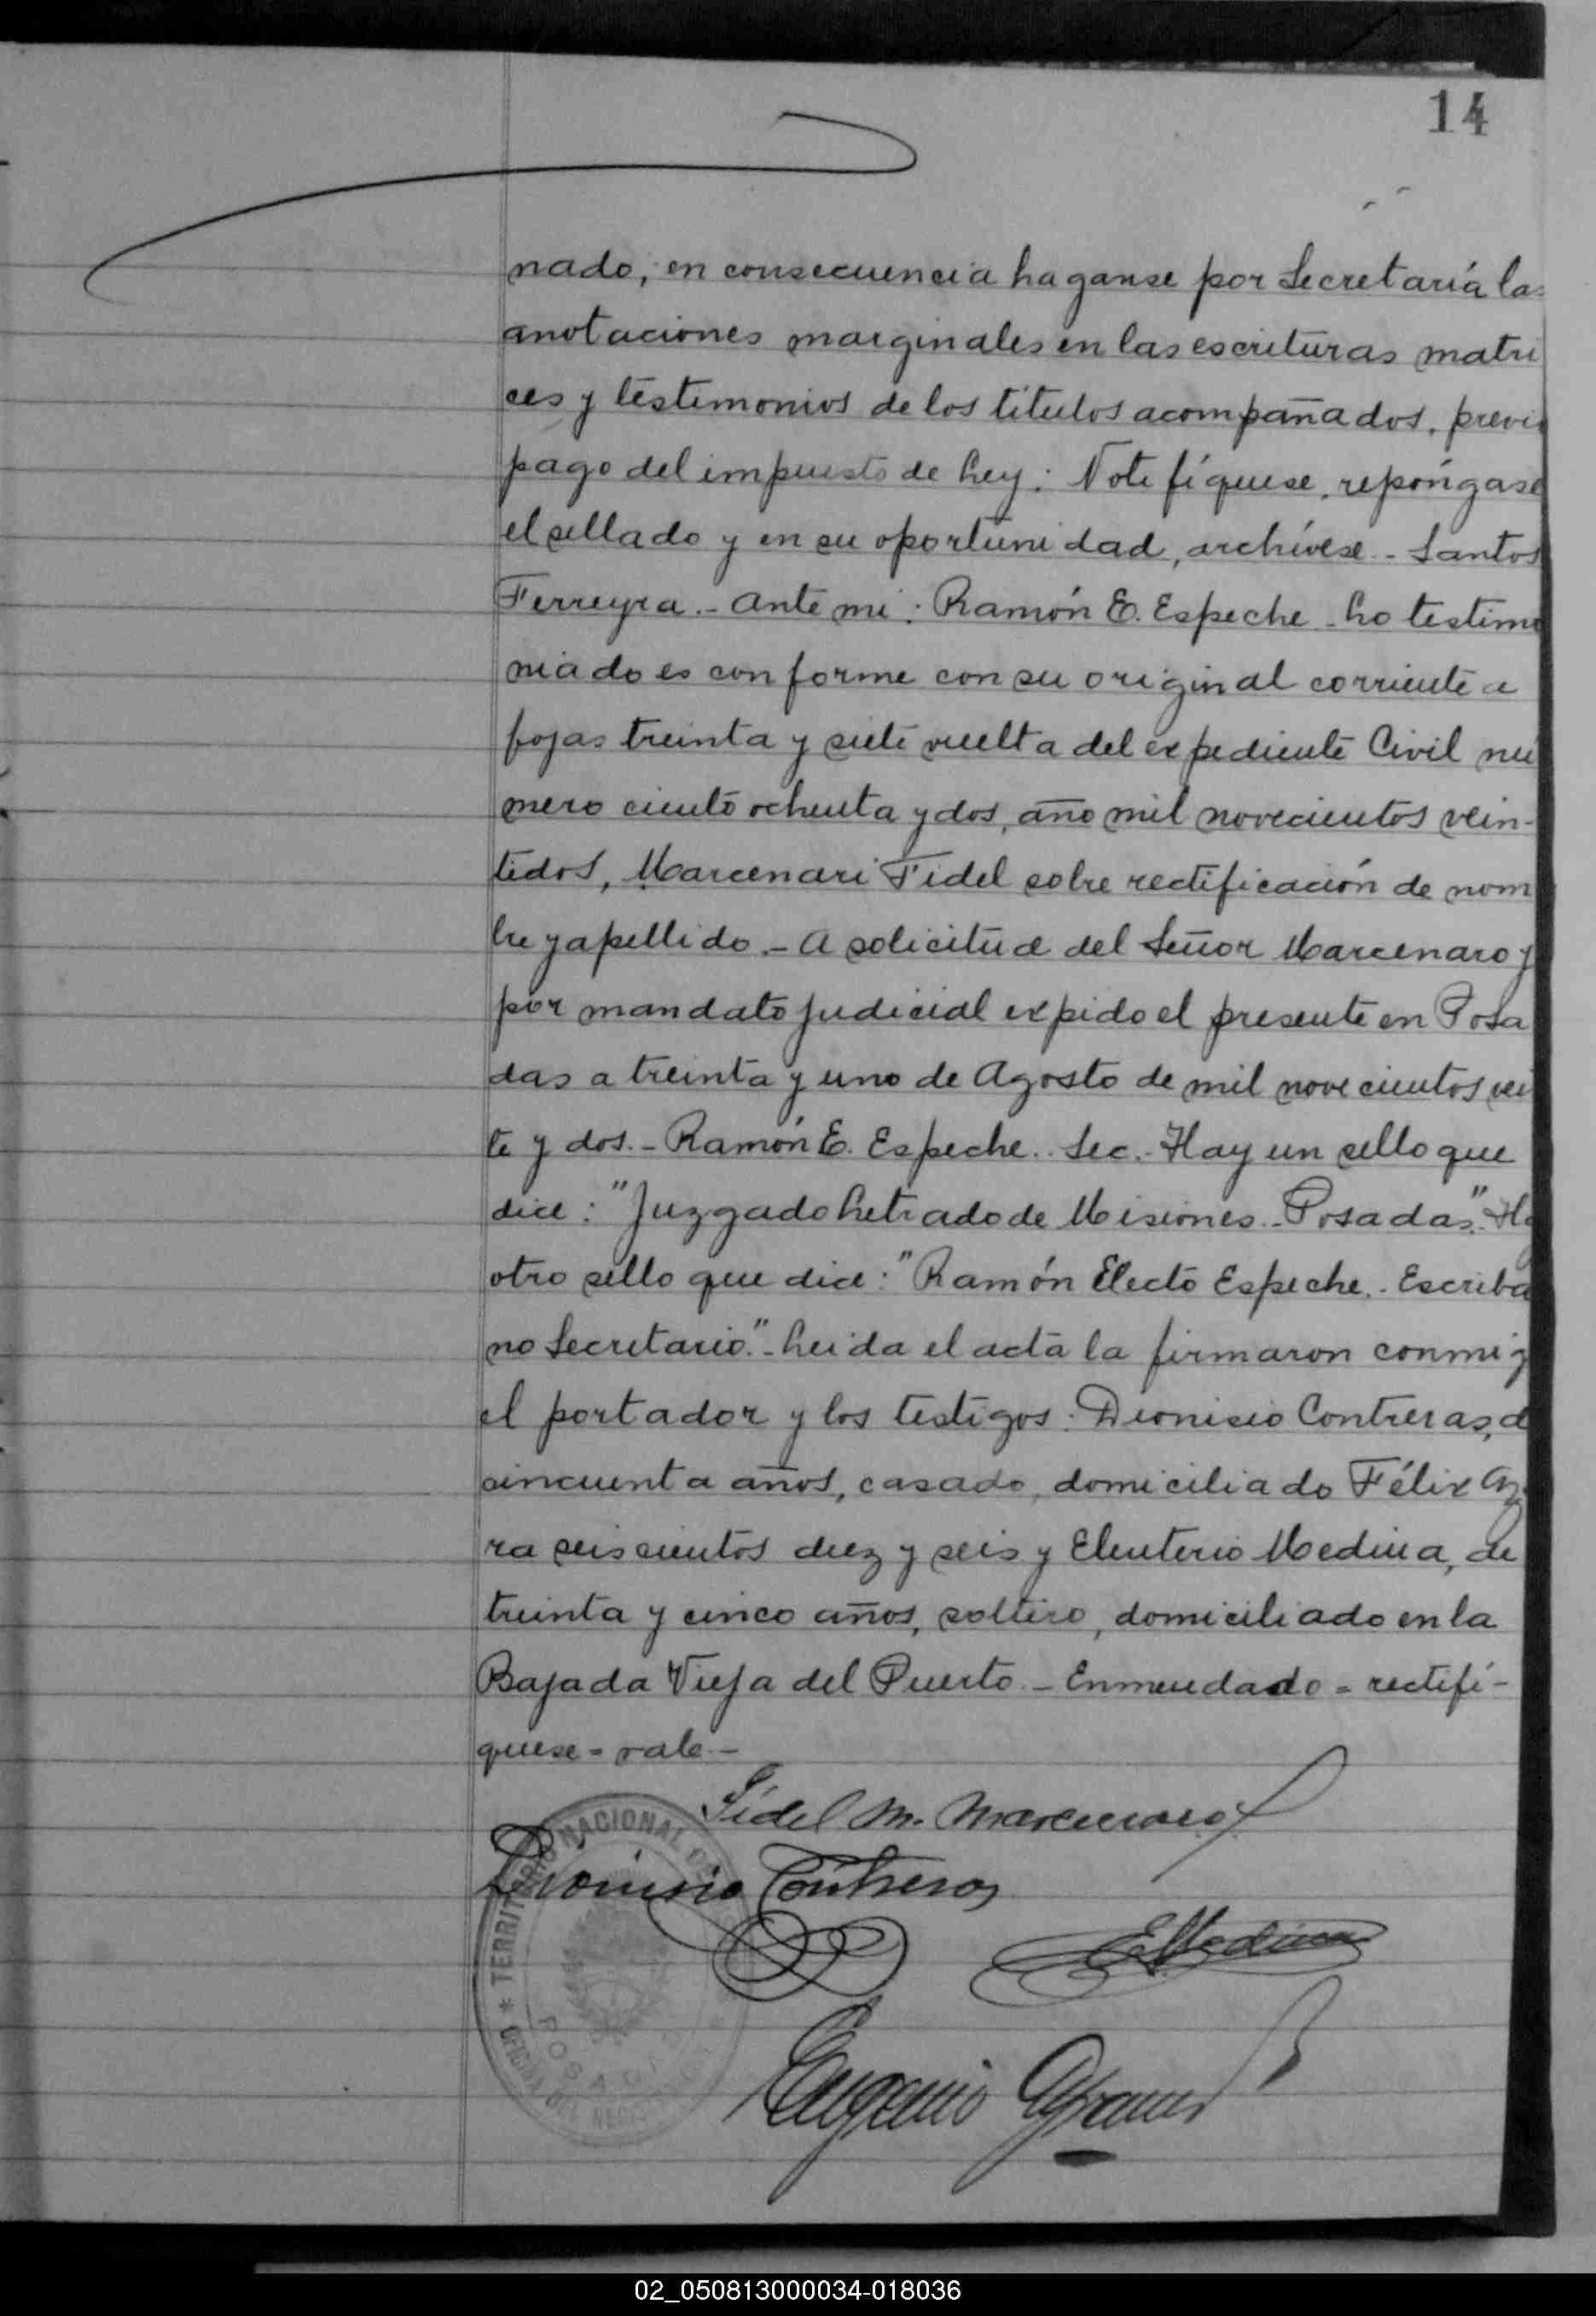 14
nado, en consecuencia haganse por Secretaría las
anotaciones marginales en las escrituras matri
ces y testimonios de los titulos acompañados, previo
pago del impuesto de Ley: Notifíquese, repóngase
el sellado y en su oportunidad, archívese.- Santos
Ferreyra.- Ante mi: Ramón E. Espeche.- Lo testimo
niado es conforme con su original corriente a
fojas treinta y siete vuelta del expediente Civil nú
mero ciento ochenta y dos, año mil novecientos vein-
tidos, Marcenari Fidel sobre rectificación de nom
bre y apellido.- A solicitud del Señor Marcenaro y
por mandato judicial expido el presente en Posa
das a treinta y uno de Agosto de mil novecientos vei
te y dos.- Ramón E. Espeche.. Sec.- Hay un sello que
dice: "Juzgado Letrado de Misiones.- Posadas".- Ha
otro sello que dice: "Ramón Electo Espeche.- Escriba
no Secretario."- Leida el acta la firmaron conmig
el portador y los testigos: Dionisio Contreras, d
cincuenta años, casado, domiciliado Félix Az
ra seiscientos diez y seis y Eleuterio Medina, de
treinta y cinco años, soltero, domiciliado en la
Bajada Vieja del Puerto.- Enmendado = rectifí-
quese = vale.-
Fidel M. Marcenaro
Dionisio Contreras
EMedina
TERRITORIO NACIONAL DE
POSADAS
OFICINA DEL REGISTRO
Eugenio
02_050813000034-018036